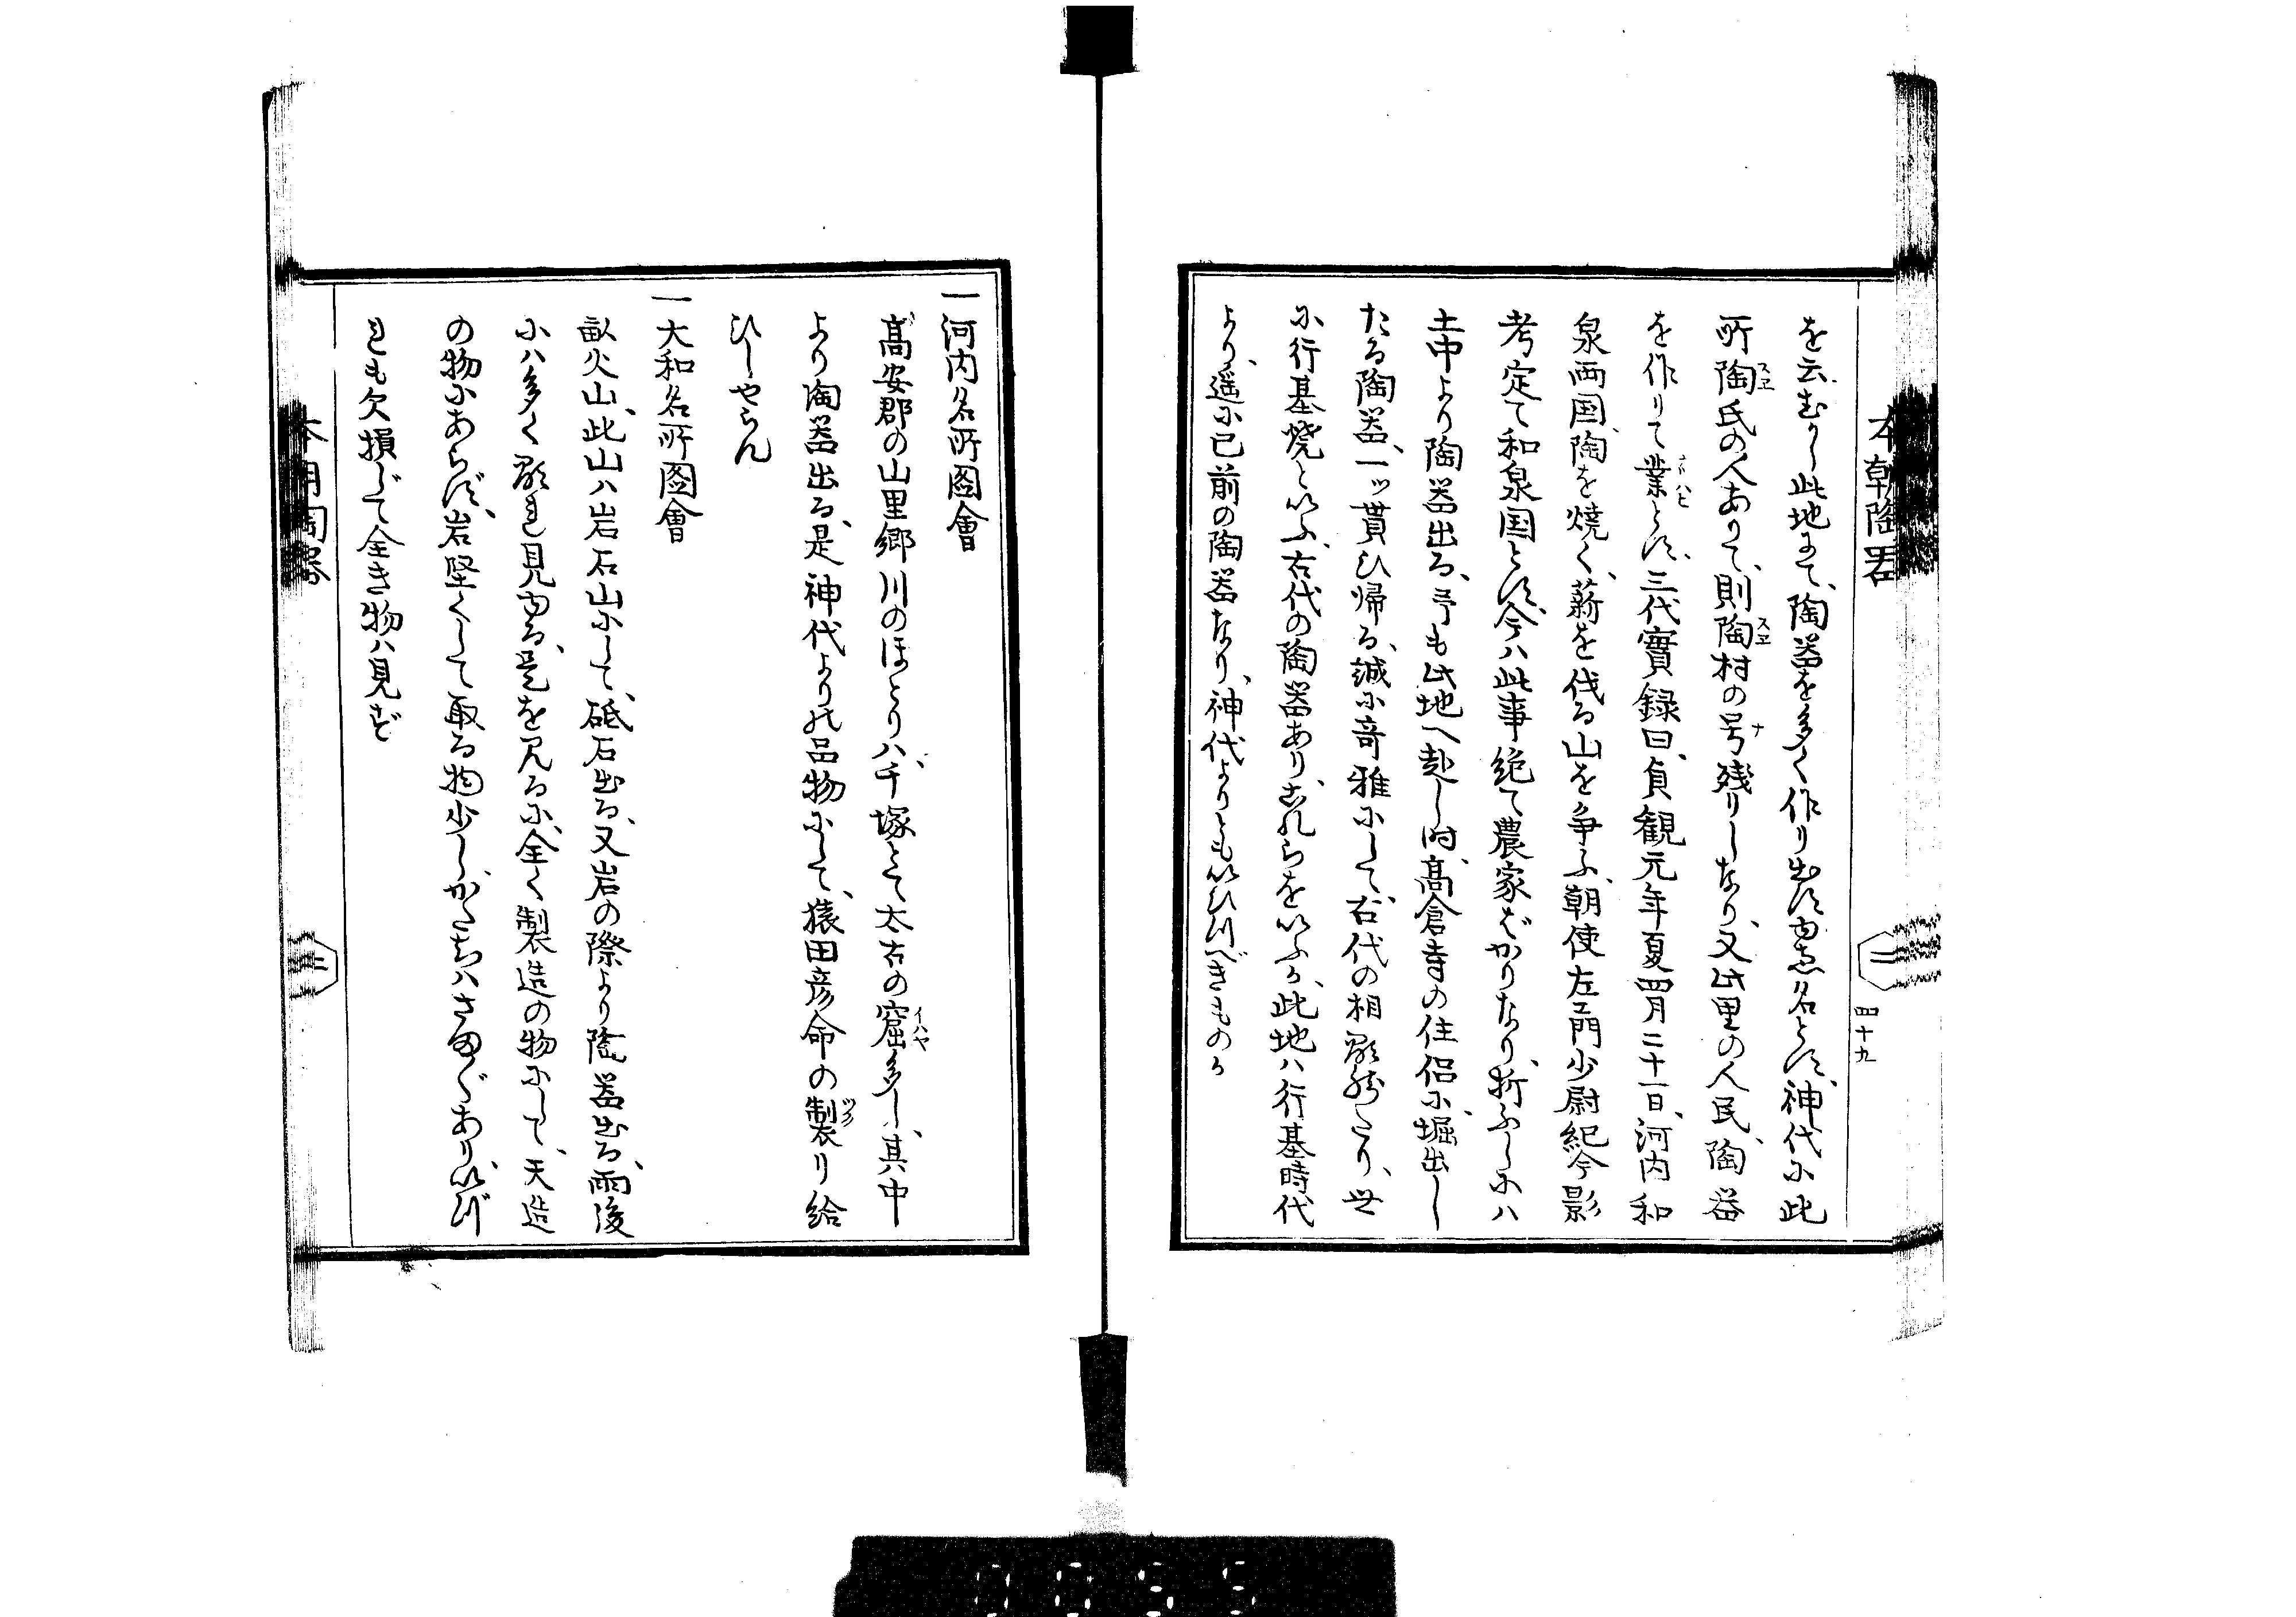 本朝陶器
四十九
を云むかし此地にて、陶器を多く作り出す、ゆゑ名とす、神代に此
所陶氏の人ありて、則陶村の号残りしなり、又此里の人民、陶器
を作りて業とす、三代實録曰、貞観元年夏四月二十一日、河内和
泉両国、陶を焼く、薪を伐る山を争ふ、朝使左衛門少尉紀今影
考定て和泉国とす、今ハ此事絶て農家ばかりなり、折ふしにハ
土中より陶器出る、予も此地へ赴し時、高倉寺の住侶に、堀出し
たる陶器、一ッ貰ひ帰る、誠に奇雅にして、古代の相顕然たり、世
に行基焼といふ、古代の陶器あり、これらをいふか、此地ハ行基時代
より、遥に已前の陶器なり、神代よりともいひつべきものか
一河内名所圖會
高安郡の山里郷川のほとりハ、千塚とて太古の窟多し、其中
より陶器出る、是神代よりの品物にして、猿田彦命の製り給
ひしやらん
一大和名所圖會
畝火山、此山ハ岩石山にして、砥石出る、又岩の際より陶器出る、雨後
にハ多く顕れ見ゆる、是を見るに、全く製造の物にして、天造
の物にあらず、岩堅くして取る物少しかたちハさまざまあり、いづ
れも欠損じて全き物ハ見ず
本朝陶器
二